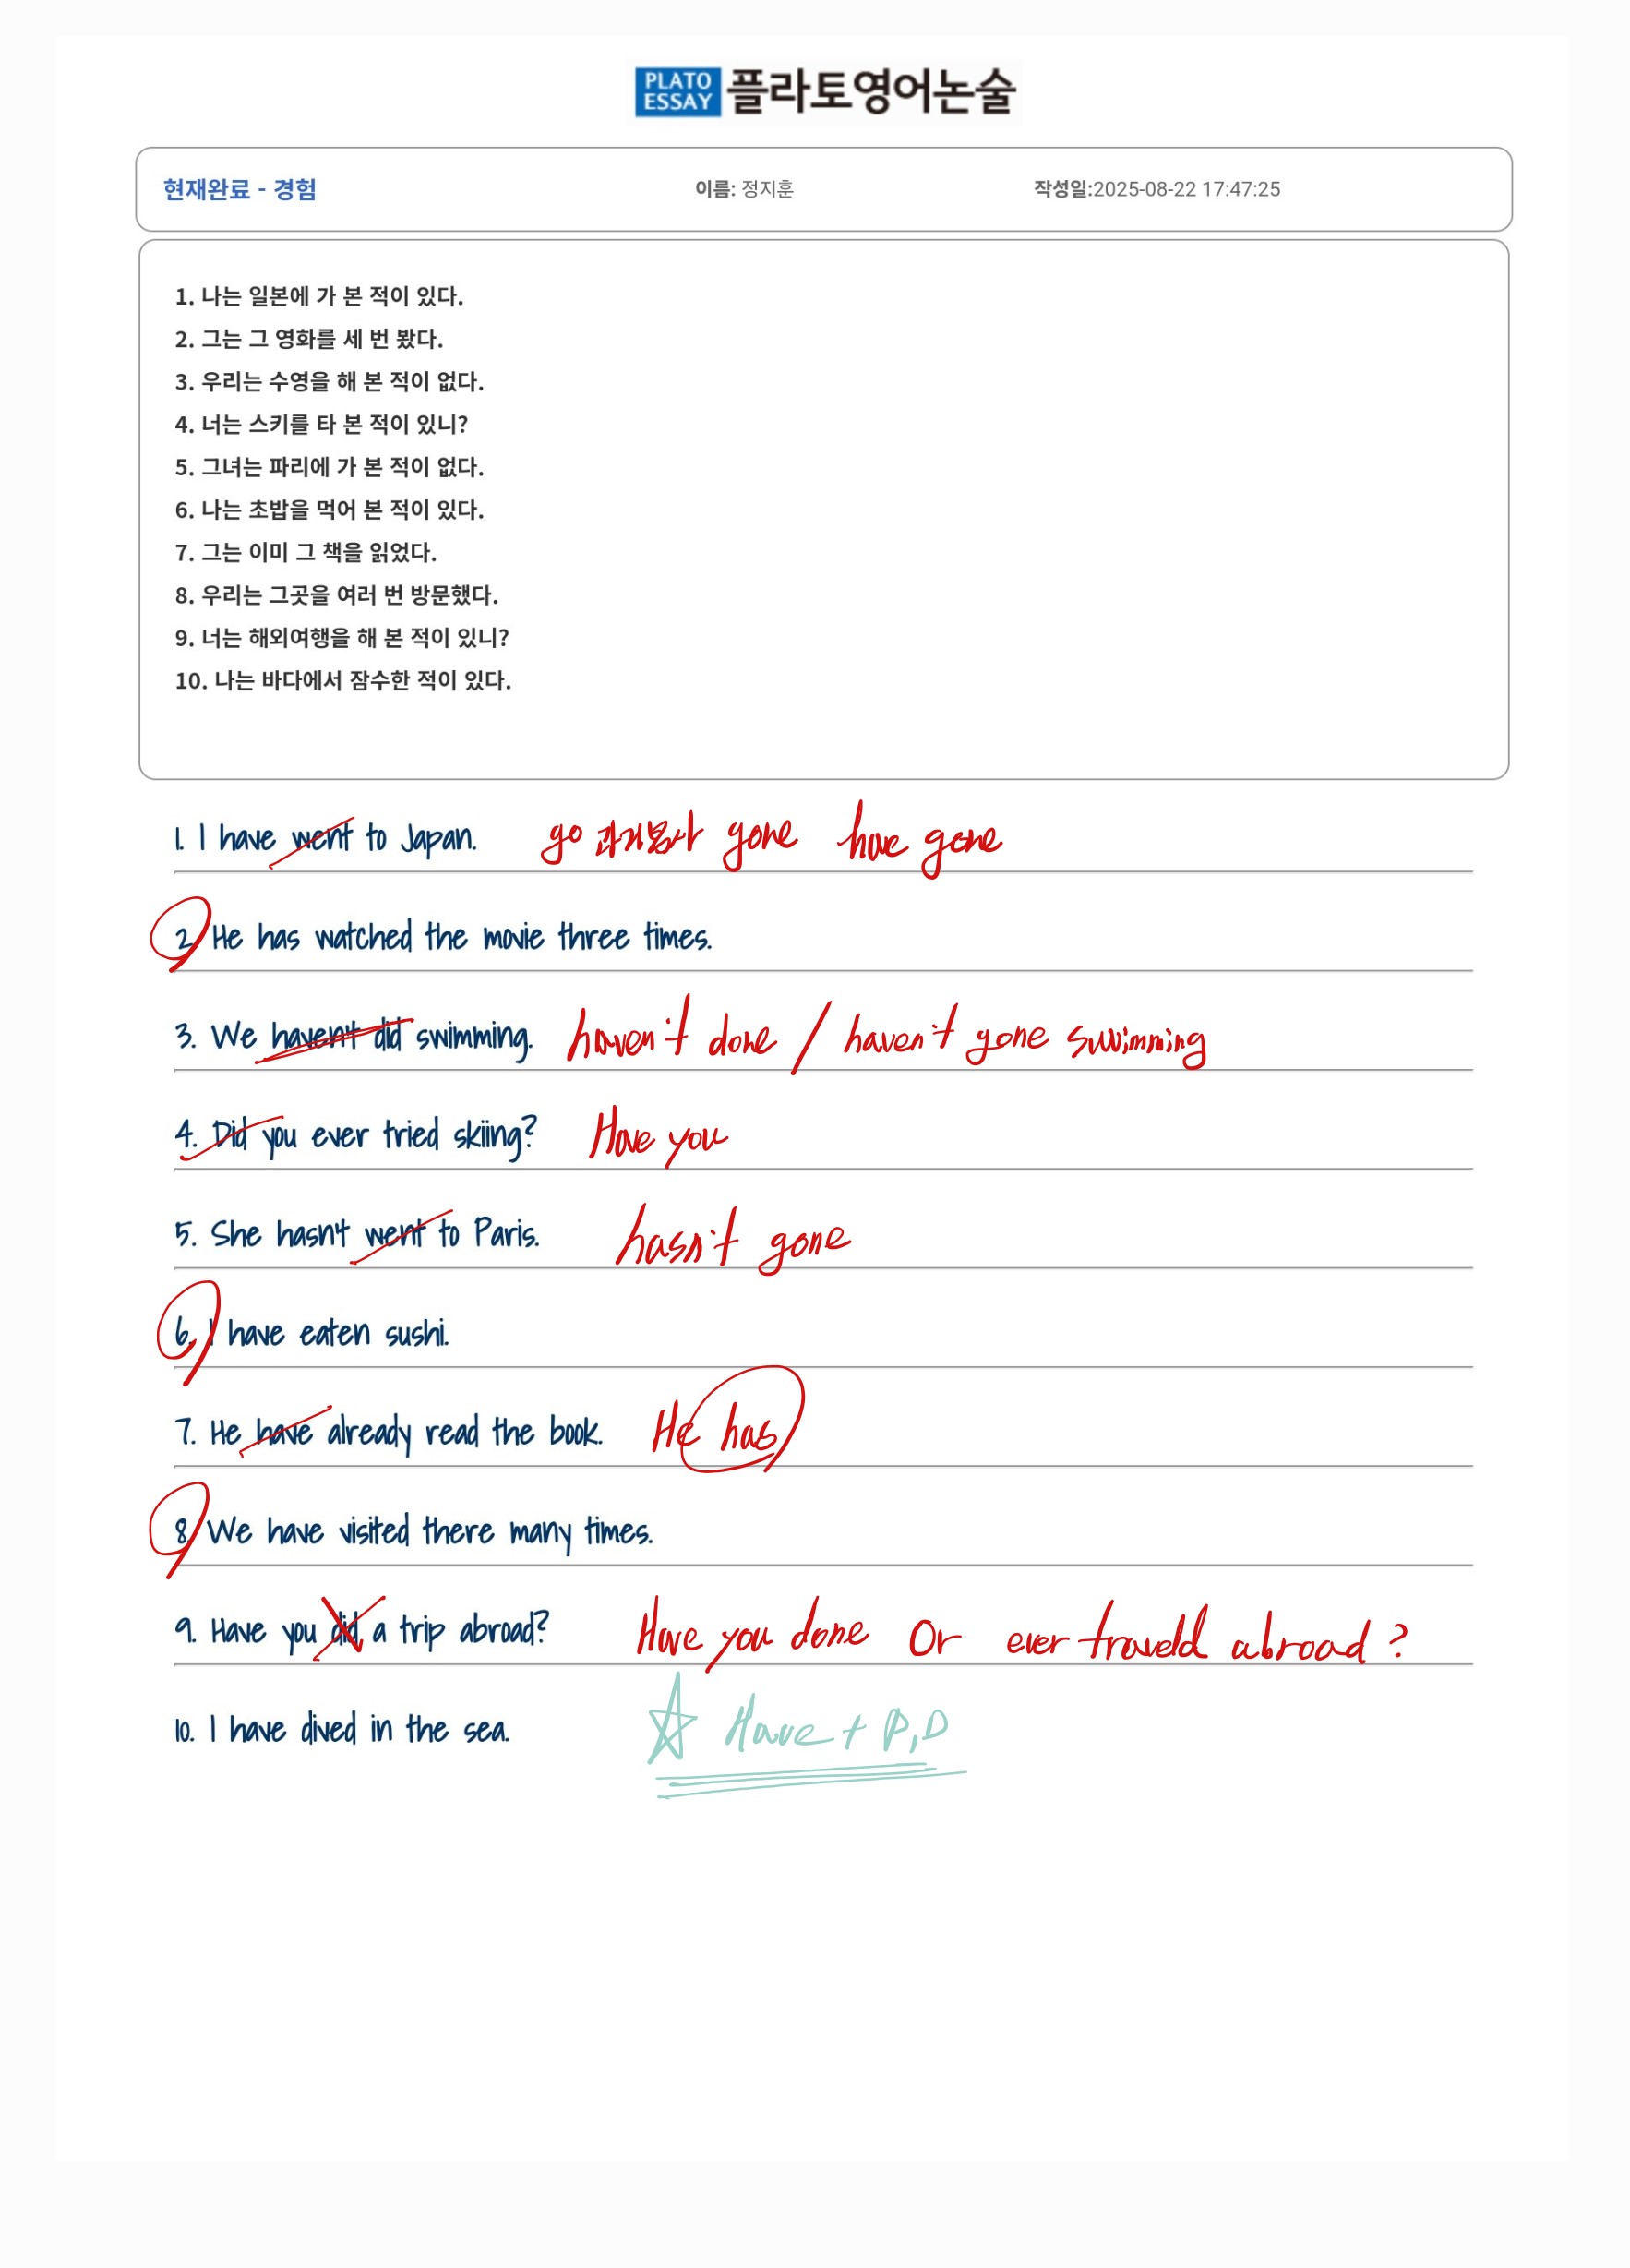 PLATO ESSAY 플라토영어논술
현재완료 - 경험 이름: 정지훈 작성일:2025-08-22 17:47:25
1. 나는 일본에 가 본 적이 있다.
2. 그는 그 영화를 세 번 봤다.
3. 우리는 수영을 해 본 적이 없다.
4. 너는 스키를 타 본 적이 있니?
5. 그녀는 파리에 가 본 적이 없다.
6. 나는 초밥을 먹어 본 적이 있다.
7. 그는 이미 그 책을 읽었다.
8. 우리는 그곳을 여러 번 방문했다.
9. 너는 해외여행을 해 본 적이 있니?
10. 나는 바다에서 잠수한 적이 있다.
1. I have went to Japan. go 과거분사 gone have gone
2. He has watched the movie three times.
3. We haven't did swimming. haven't done / haven't gone swimming
4. Did you ever tried skiing? Have you
5. She hasn't went to Paris. hasn't gone
6. I have eaten sushi.
7. He have already read the book. He has
8. We have visited there many times.
9. Have you did a trip abroad? Have you done or ever traveld abroad?
10. I have dived in the sea. Have + P,D